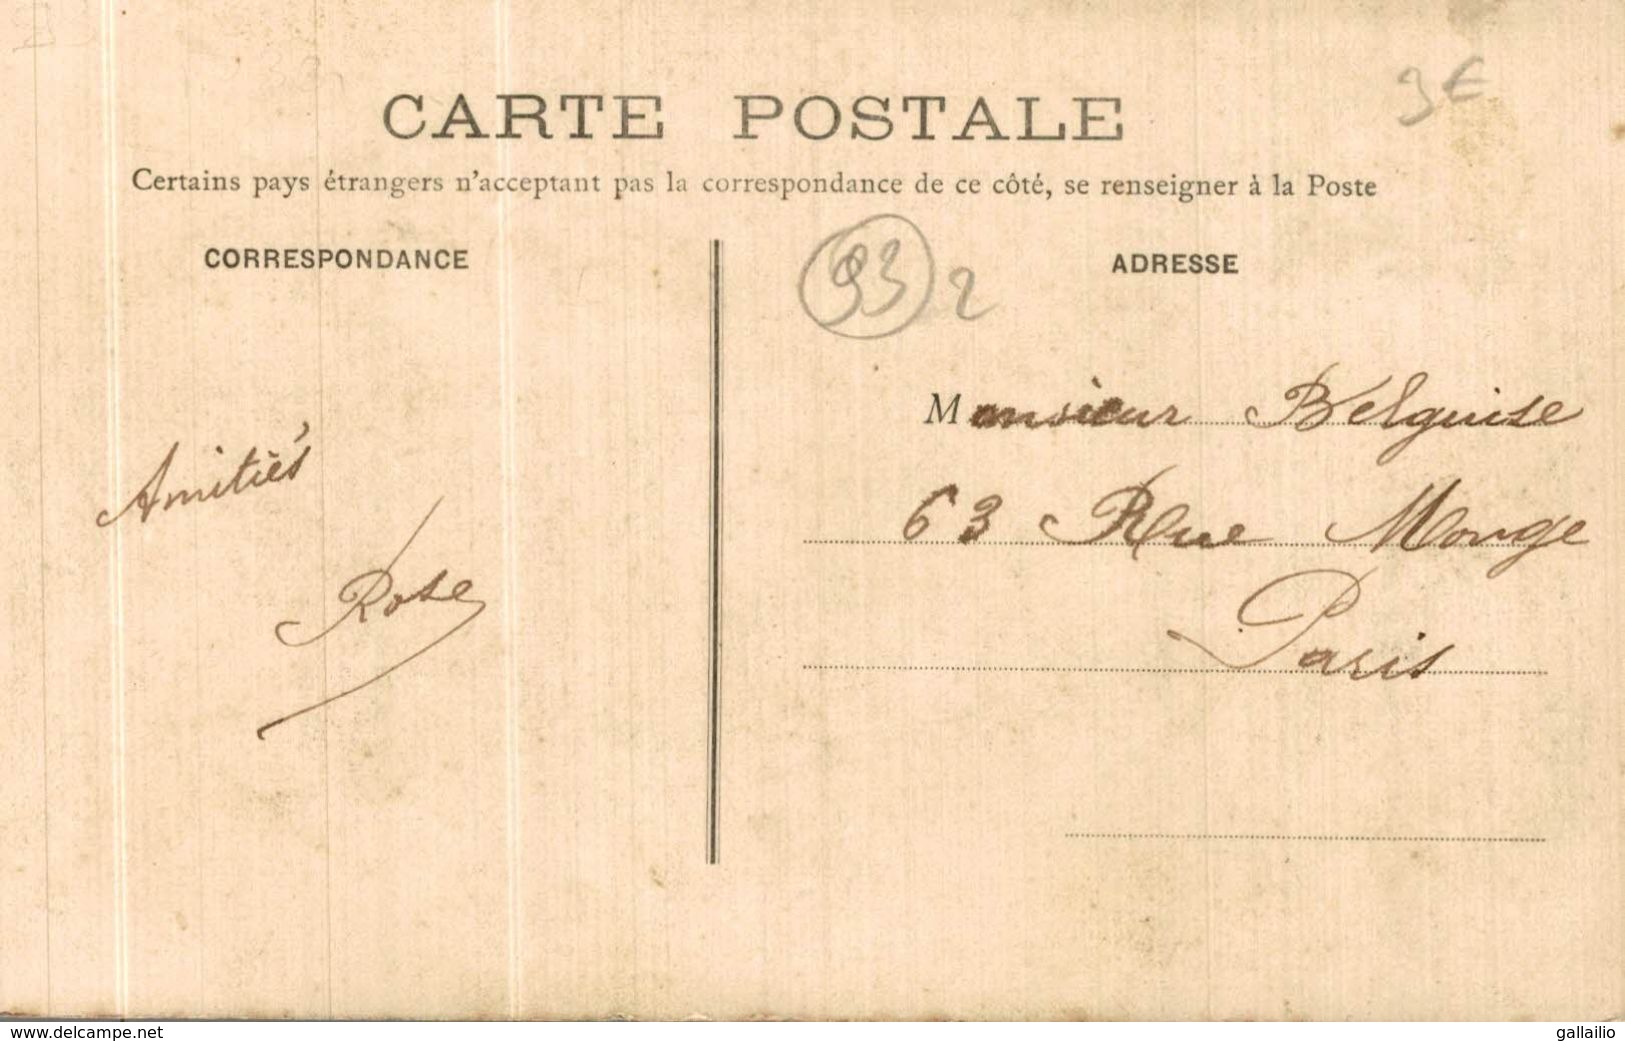 9€
CARTE POSTALE
Certains pays étrangers n'acceptant pas la correspondance de ce côté, se renseigner à la Poste
CORRESPONDANCE
Amitiés
Rose
93 2
ADRESSE
Monsieur Belguise
63 Rue Monge
Paris
www.delcampe.net
gallailio